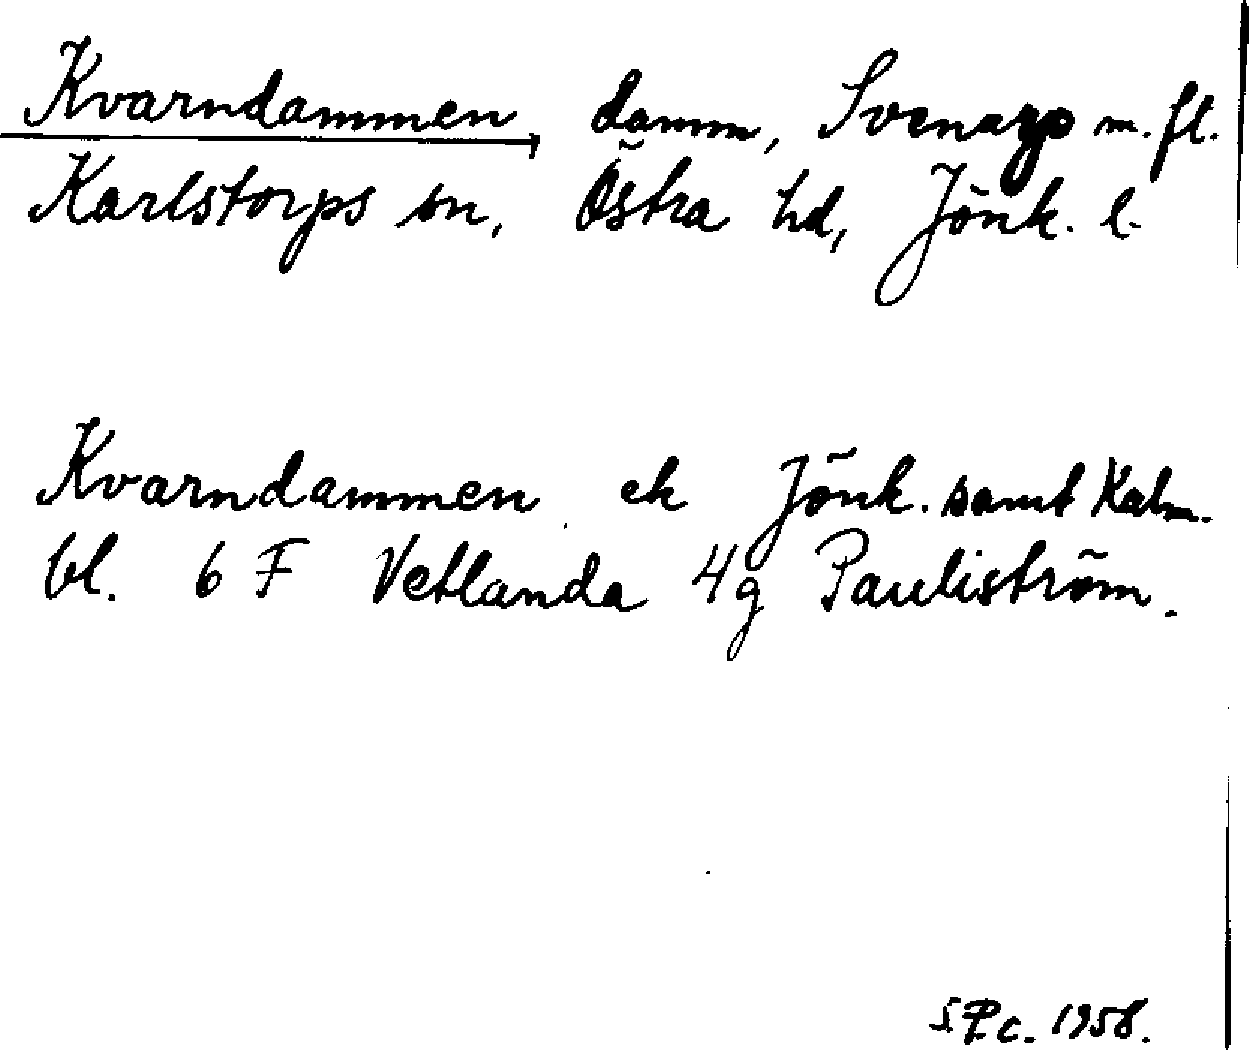 Kvarndammen, damm, Svenarp m. fl.
Karlstorps sn, Östra hd, Jönk. l.
Kvarndammen ek Jönk. samt Kalm.
bl. 6 F Vetlanda 4g Pauliström.
1958.